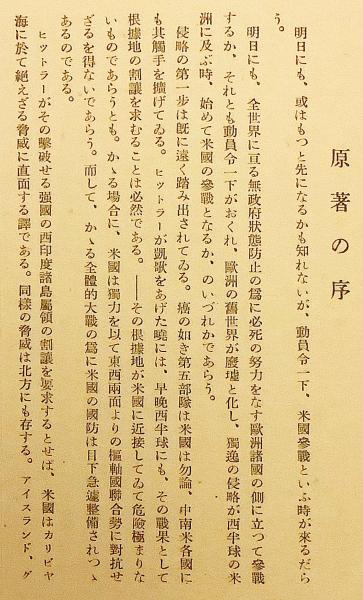 原著の序
明日にも、或はもつと先になるかも知れないが、動員令一下、米國參戰といふ時が來るだら
う。
明日にも、全世界に亘る無政府狀態防止の爲に必死の努力をなす歐洲諸國の側に立つて參戰
するか、それとも動員令一下がおくれ、歐洲の舊世界が廢墟と化し、獨逸の侵略が西半球の米
洲に及ぶ時、始めて米國の參戰となるか、のいづれかであらう。
侵略の第一步は旣に遠く踏み出されてゐる。癌の如き第五部隊は米國は勿論、中南米各國に
も其觸手を擴げてゐる。ヒットラーが凱歌をあげた曉には、早晚西半球にも、その戰果として
根據地の割讓を求むることは必然である。――その根據地が米國に近接してゐて危險極まりな
いものであらうとも。かゝる場合に、米國は獨力を以て東西兩面よりの樞軸國聯合勢に對抗せ
ざるを得ないであらう。而して、かゝる全體的大戰の爲に米國の國防は目下急遽整備されつゝ
あるのである。
ヒットラーがその擊破せる强國の西印度諸島屬領の割讓を要求するとせば、米國はカリビヤ
海に於て絕えざる脅威に直面する譯である。同樣の脅威は北方にも存する。アイスランド、グ